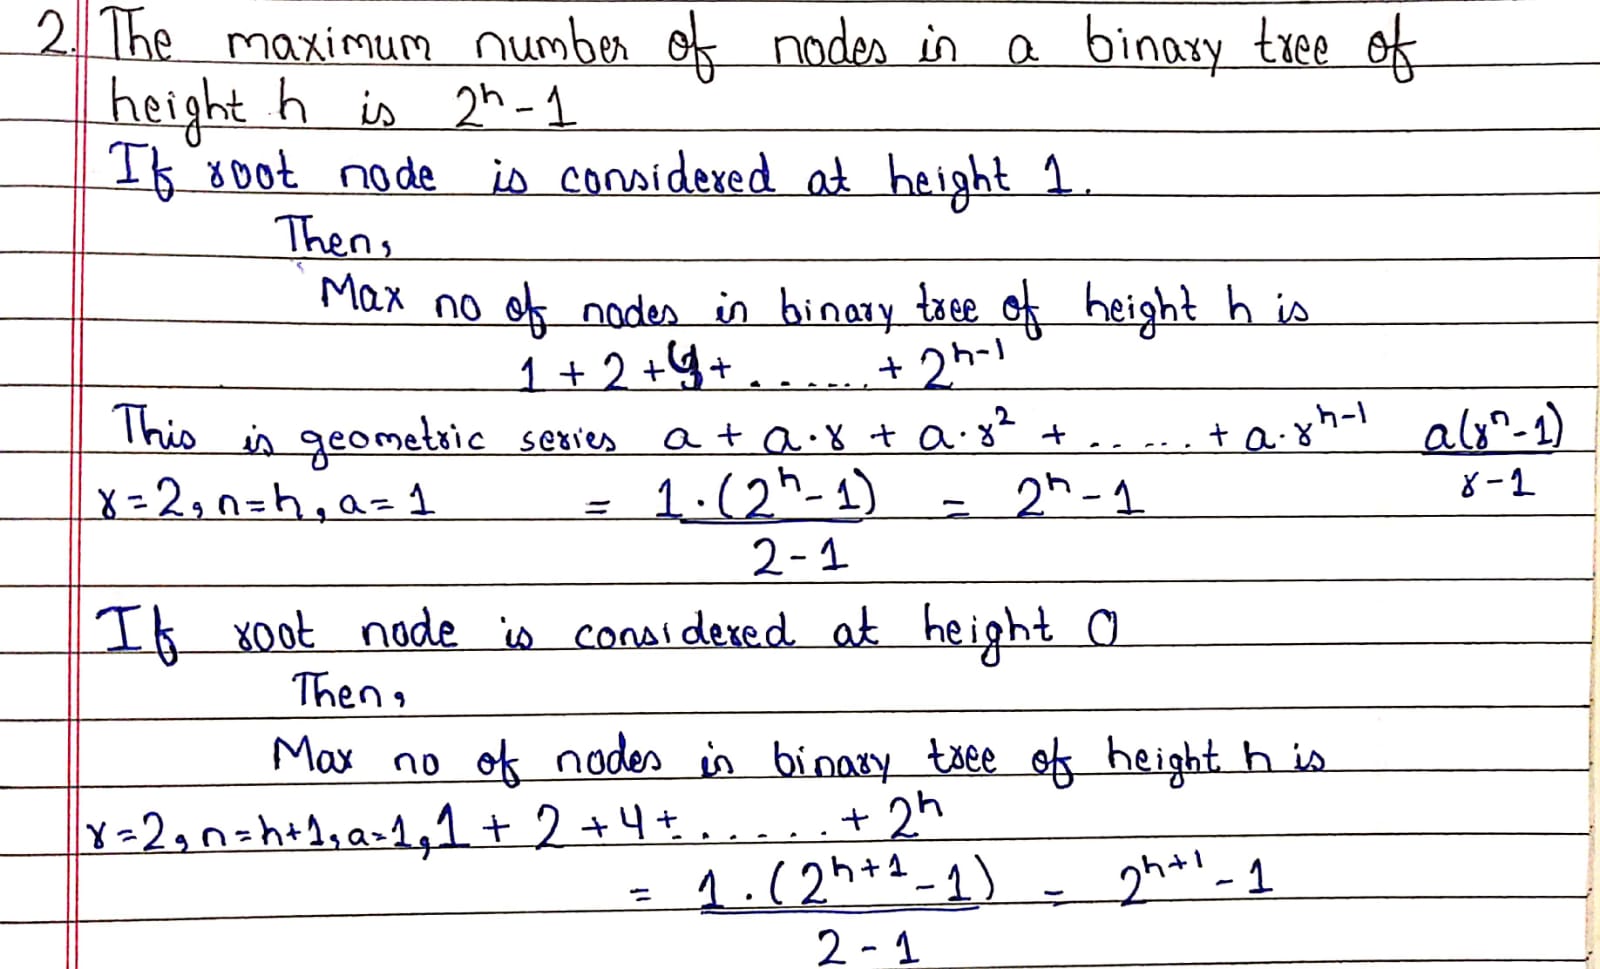 2. The maximum number of nodes in a binary tree of
height h is 2^h - 1
If root node is considered at height 1.
Then,
Max no of nodes in binary tree of height h is
1 + 2 + 4 + ....... + 2^h-1
This is geometric series a + a.r + a.r^2 + ...... + a.r^h-1 a(r^n-1)/r-1
r=2, n=h, a=1 = 1.(2^h-1)/2-1 = 2^h-1
If root node is considered at height 0
Then,
Max no of nodes in binary tree of height h is
r=2, n=h+1, a=1, 1 + 2 + 4 + ...... + 2^h
= 1.(2^h+1-1)/2-1 = 2^h+1-1